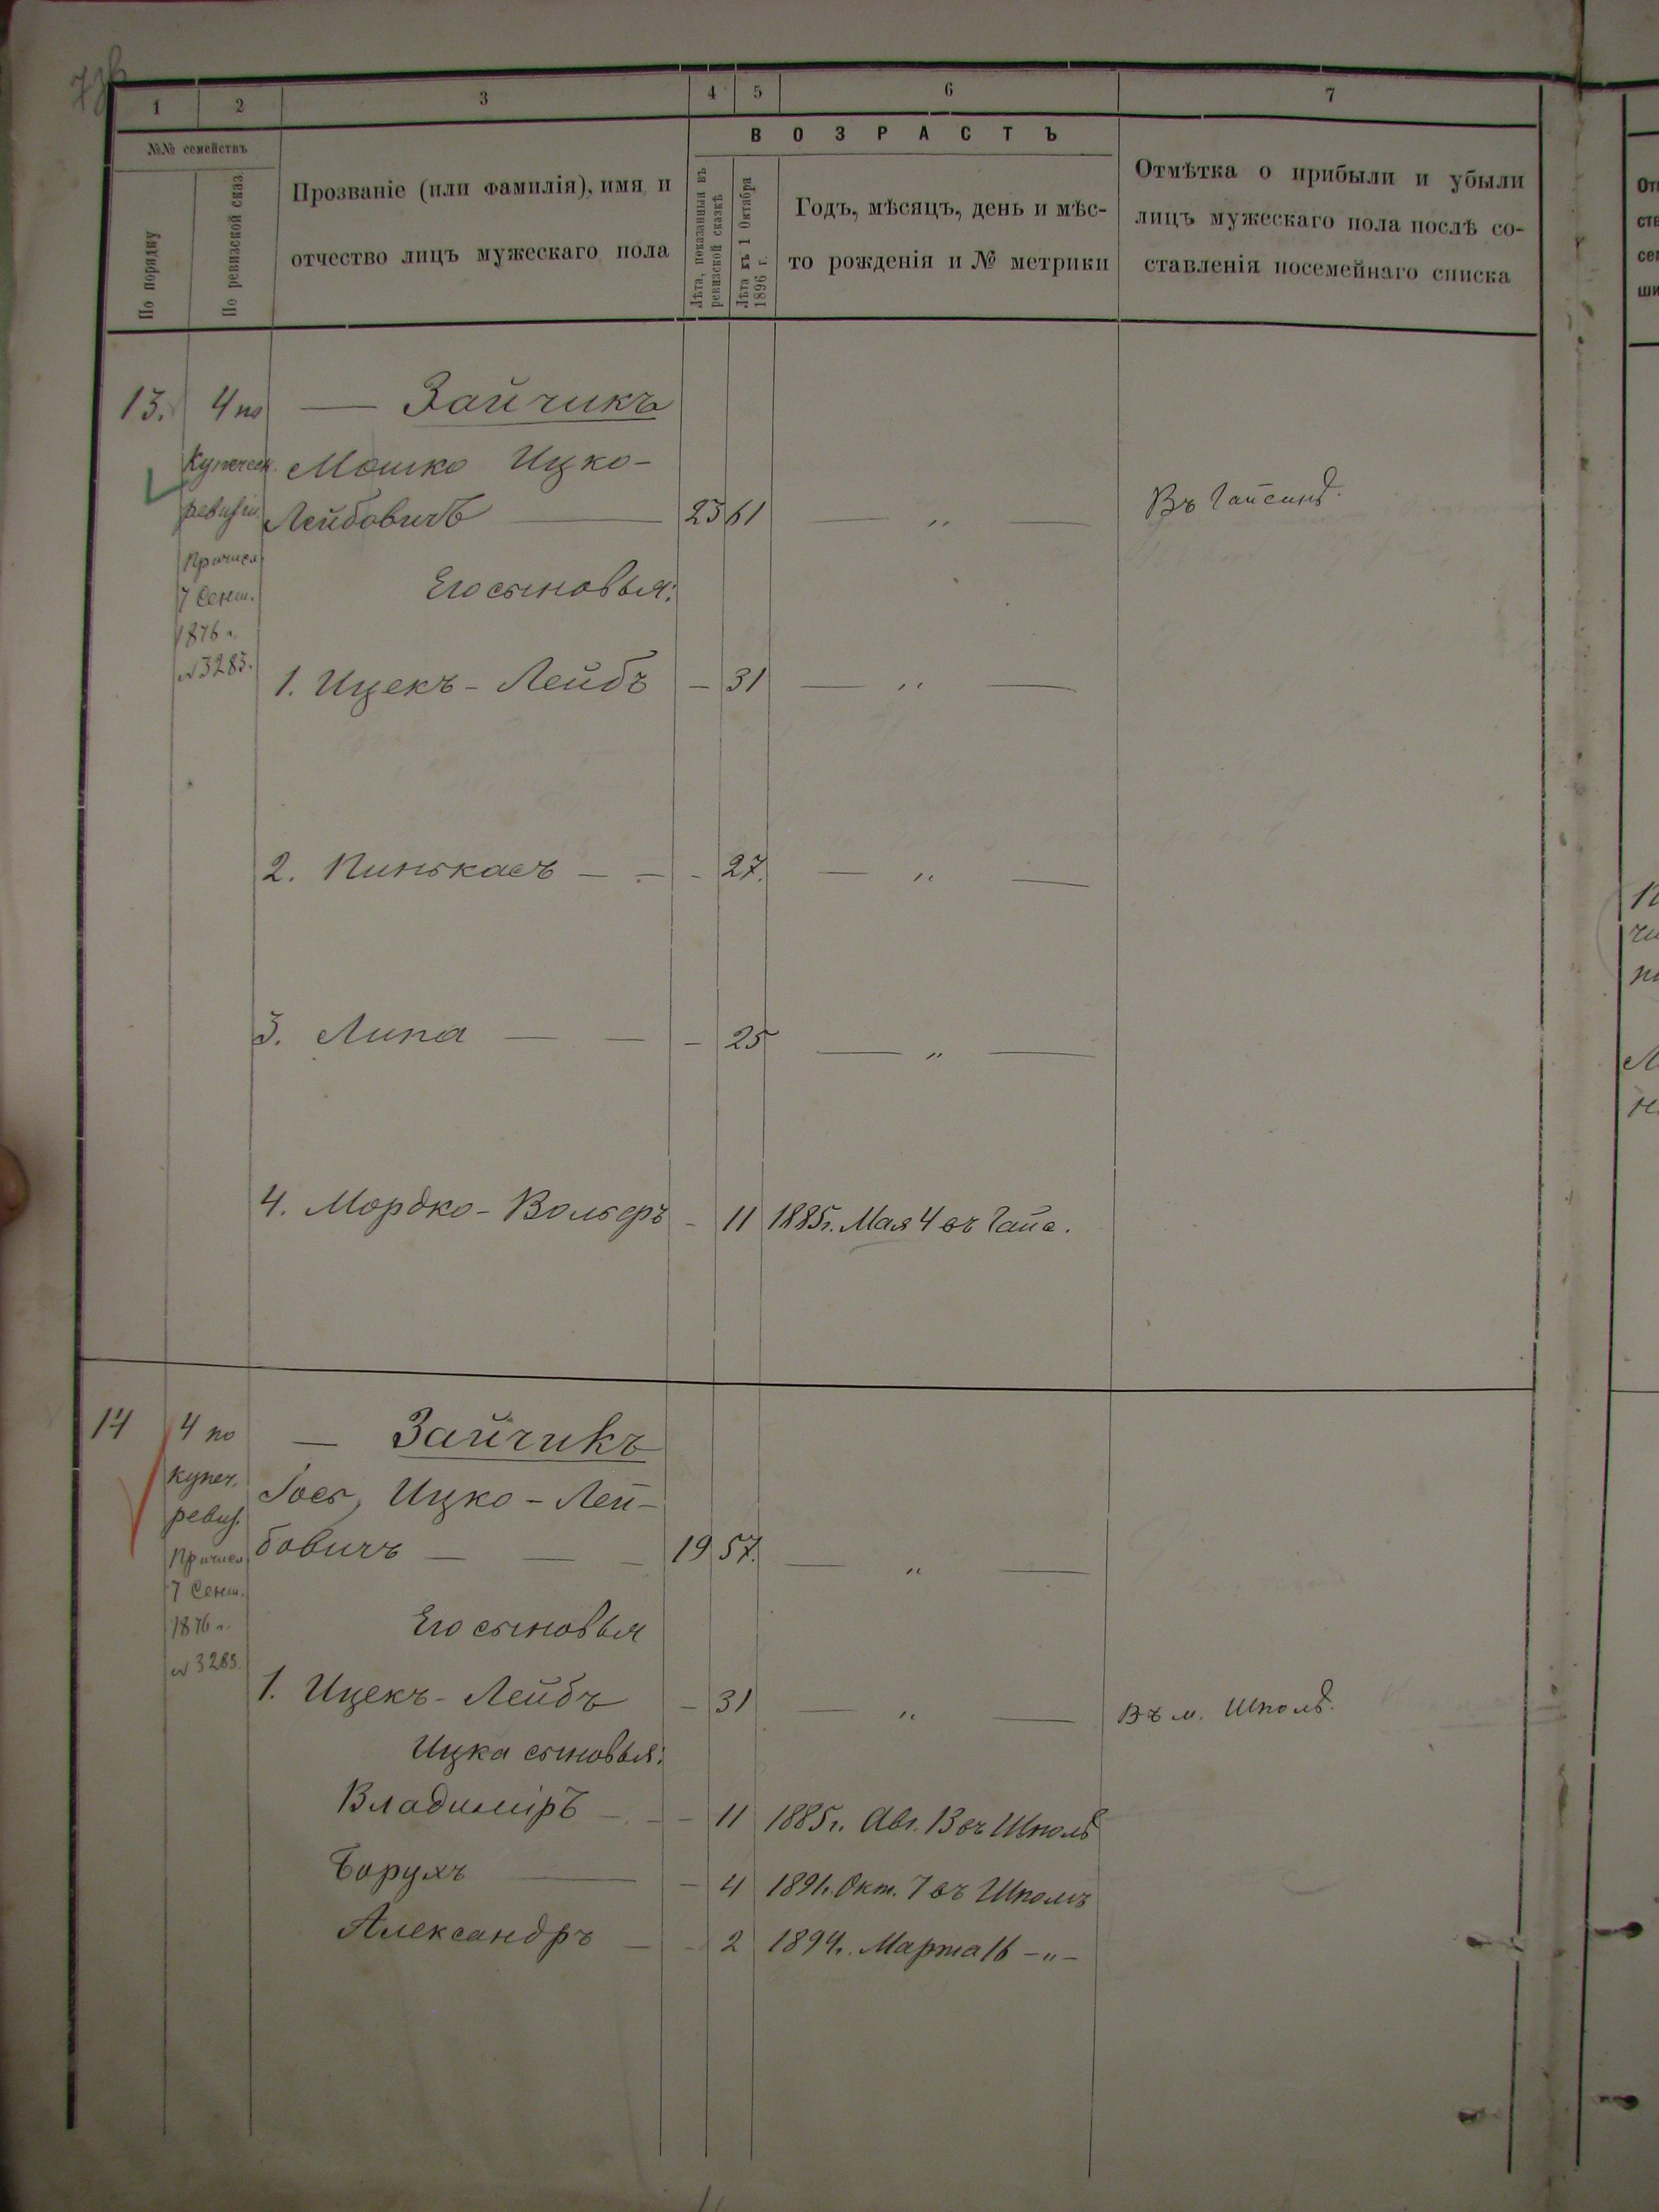 1 2 3 4 5 6 7
В О З Р А С Т Ъ
№№ семействъ
По порядку
По ревизской сказ
Прозваніе (или фамилія), имя и
отчество лицъ мужескаго пола
Лѣта, показанныя въ
ревизской сказкѣ
Лѣта къ 1 Октября
1896 г.
Годъ, мѣсяцъ, день и мѣс-
то рожденія и № метрики
Отмѣтка о прибыли и убыли
лицъ мужескаго пола послѣ со-
ставленія посемейнаго списка
13. 4 по — Зайчикъ
Купеческ. Мошко Ицко-
ревизіи. Лейбовичъ — 23 61 — „ — Въ Гайсинѣ.
Причисл.
7 Сент.
1876 г.
№ 3283.
Его сыновья:
1. Ицекъ - Лейбъ - 31 — „ —
2. Пинькасъ — — - 27. — „ —
3. Липа — — - 25 — „ —
4. Мордко - Вольфъ - 11 1885 г. Мая 4 въ Гайс.
14 4 по — Зайчикъ
купеч. Іосъ, Ицко - Лей-
ревиз. бовичъ — — - 19 57. — „ —
Причисл.
7 Сент.
1876 г.
№ 3283.
Его сыновья
1. Ицекъ - Лейбъ - 31 — „ — Въ м. Шполѣ.
Ицка сыновья:
Владиміръ — - 11 1885 г. Авг. 13 въ Шполѣ
Борухъ — - 4 1891. Окт. 7 въ Шполѣ
Александръ — - 2 1894. Марта 16 - „ -